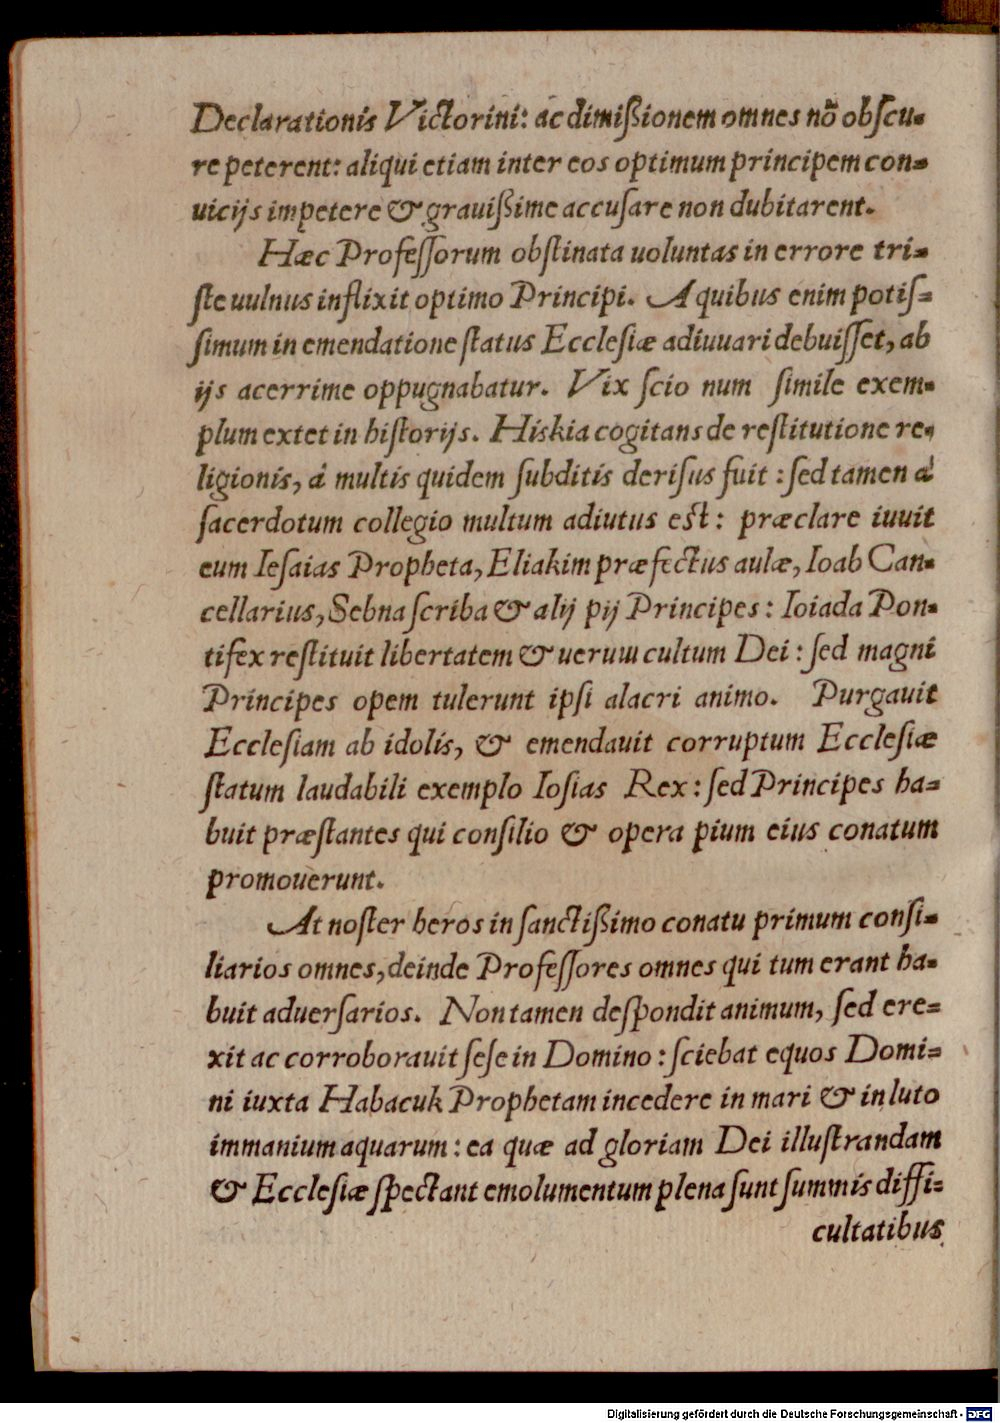 Declarationis Victorini: ac dimißionem omnes nō obſcu-
re peterent: aliqui etiam inter eos optimum principem con-
uicijs impetere & grauißime accuſare non dubitarent.
Hæc Profeſſorum obſtinata uoluntas in errore tri-
ſte uulnus inflixit optimo Principi. A quibus enim potiſ-
ſimum in emendatione ſtatus Eccleſiæ adiuuari debuiſſet, ab
ijs acerrime oppugnabatur. Vix ſcio num ſimile exem-
plum extet in hiſtorijs. Hiskia cogitans de reſtitutione re-
ligionis, á multis quidem ſubditis deriſus fuit : ſed tamen á
ſacerdotum collegio multum adiutus eſt : præclare iuuit
eum Ieſaias Propheta, Eliakim præfectus aulæ, Ioab Can-
cellarius, Sebna ſcriba & alij pij Principes : Ioiada Pon-
tifex reſtituit libertatem & uerum cultum Dei : ſed magni
Principes opem tulerunt ipſi alacri animo. Purgauit
Eccleſiam ab idolis, & emendauit corruptum Eccleſiæ
ſtatum laudabili exemplo Ioſias Rex : ſed Principes ha-
buit præſtantes qui conſilio & opera pium eius conatum
promouerunt.
At noſter heros in ſanctißimo conatu primum conſi-
liarios omnes, deinde Profeſſores omnes qui tum erant ha-
buit aduerſarios. Non tamen deſpondit animum, ſed ere-
xit ac corroborauit ſeſe in Domino : ſciebat equos Domi-
ni iuxta Habacuk Prophetam incedere in mari & in luto
immanium aquarum : ea quæ ad gloriam Dei illuſtrandam
& Eccleſiæ ſpectant emolumentum plena ſunt ſummis diffi-
cultatibus
Digitalisierung gefördert durch die Deutsche Forschungsgemeinschaft - DFG